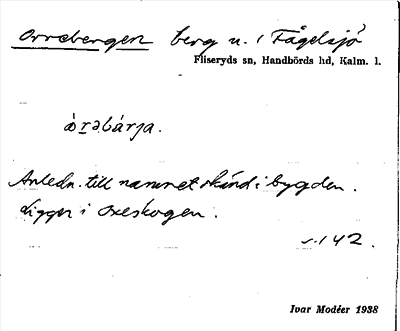 Orrebergen berg n. i Fågelsjö
Fliseryds sn, Handbörds hd, Kalm. l.
òrəbárja.
Anledn. till namnet okänd i bygden.
Ligger i Oxeskogen.
s. 142.
Ivar Modéer 1938